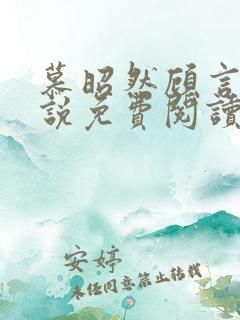 慕昭然顾言
说免费阅读
安婷
未经同意禁止转载